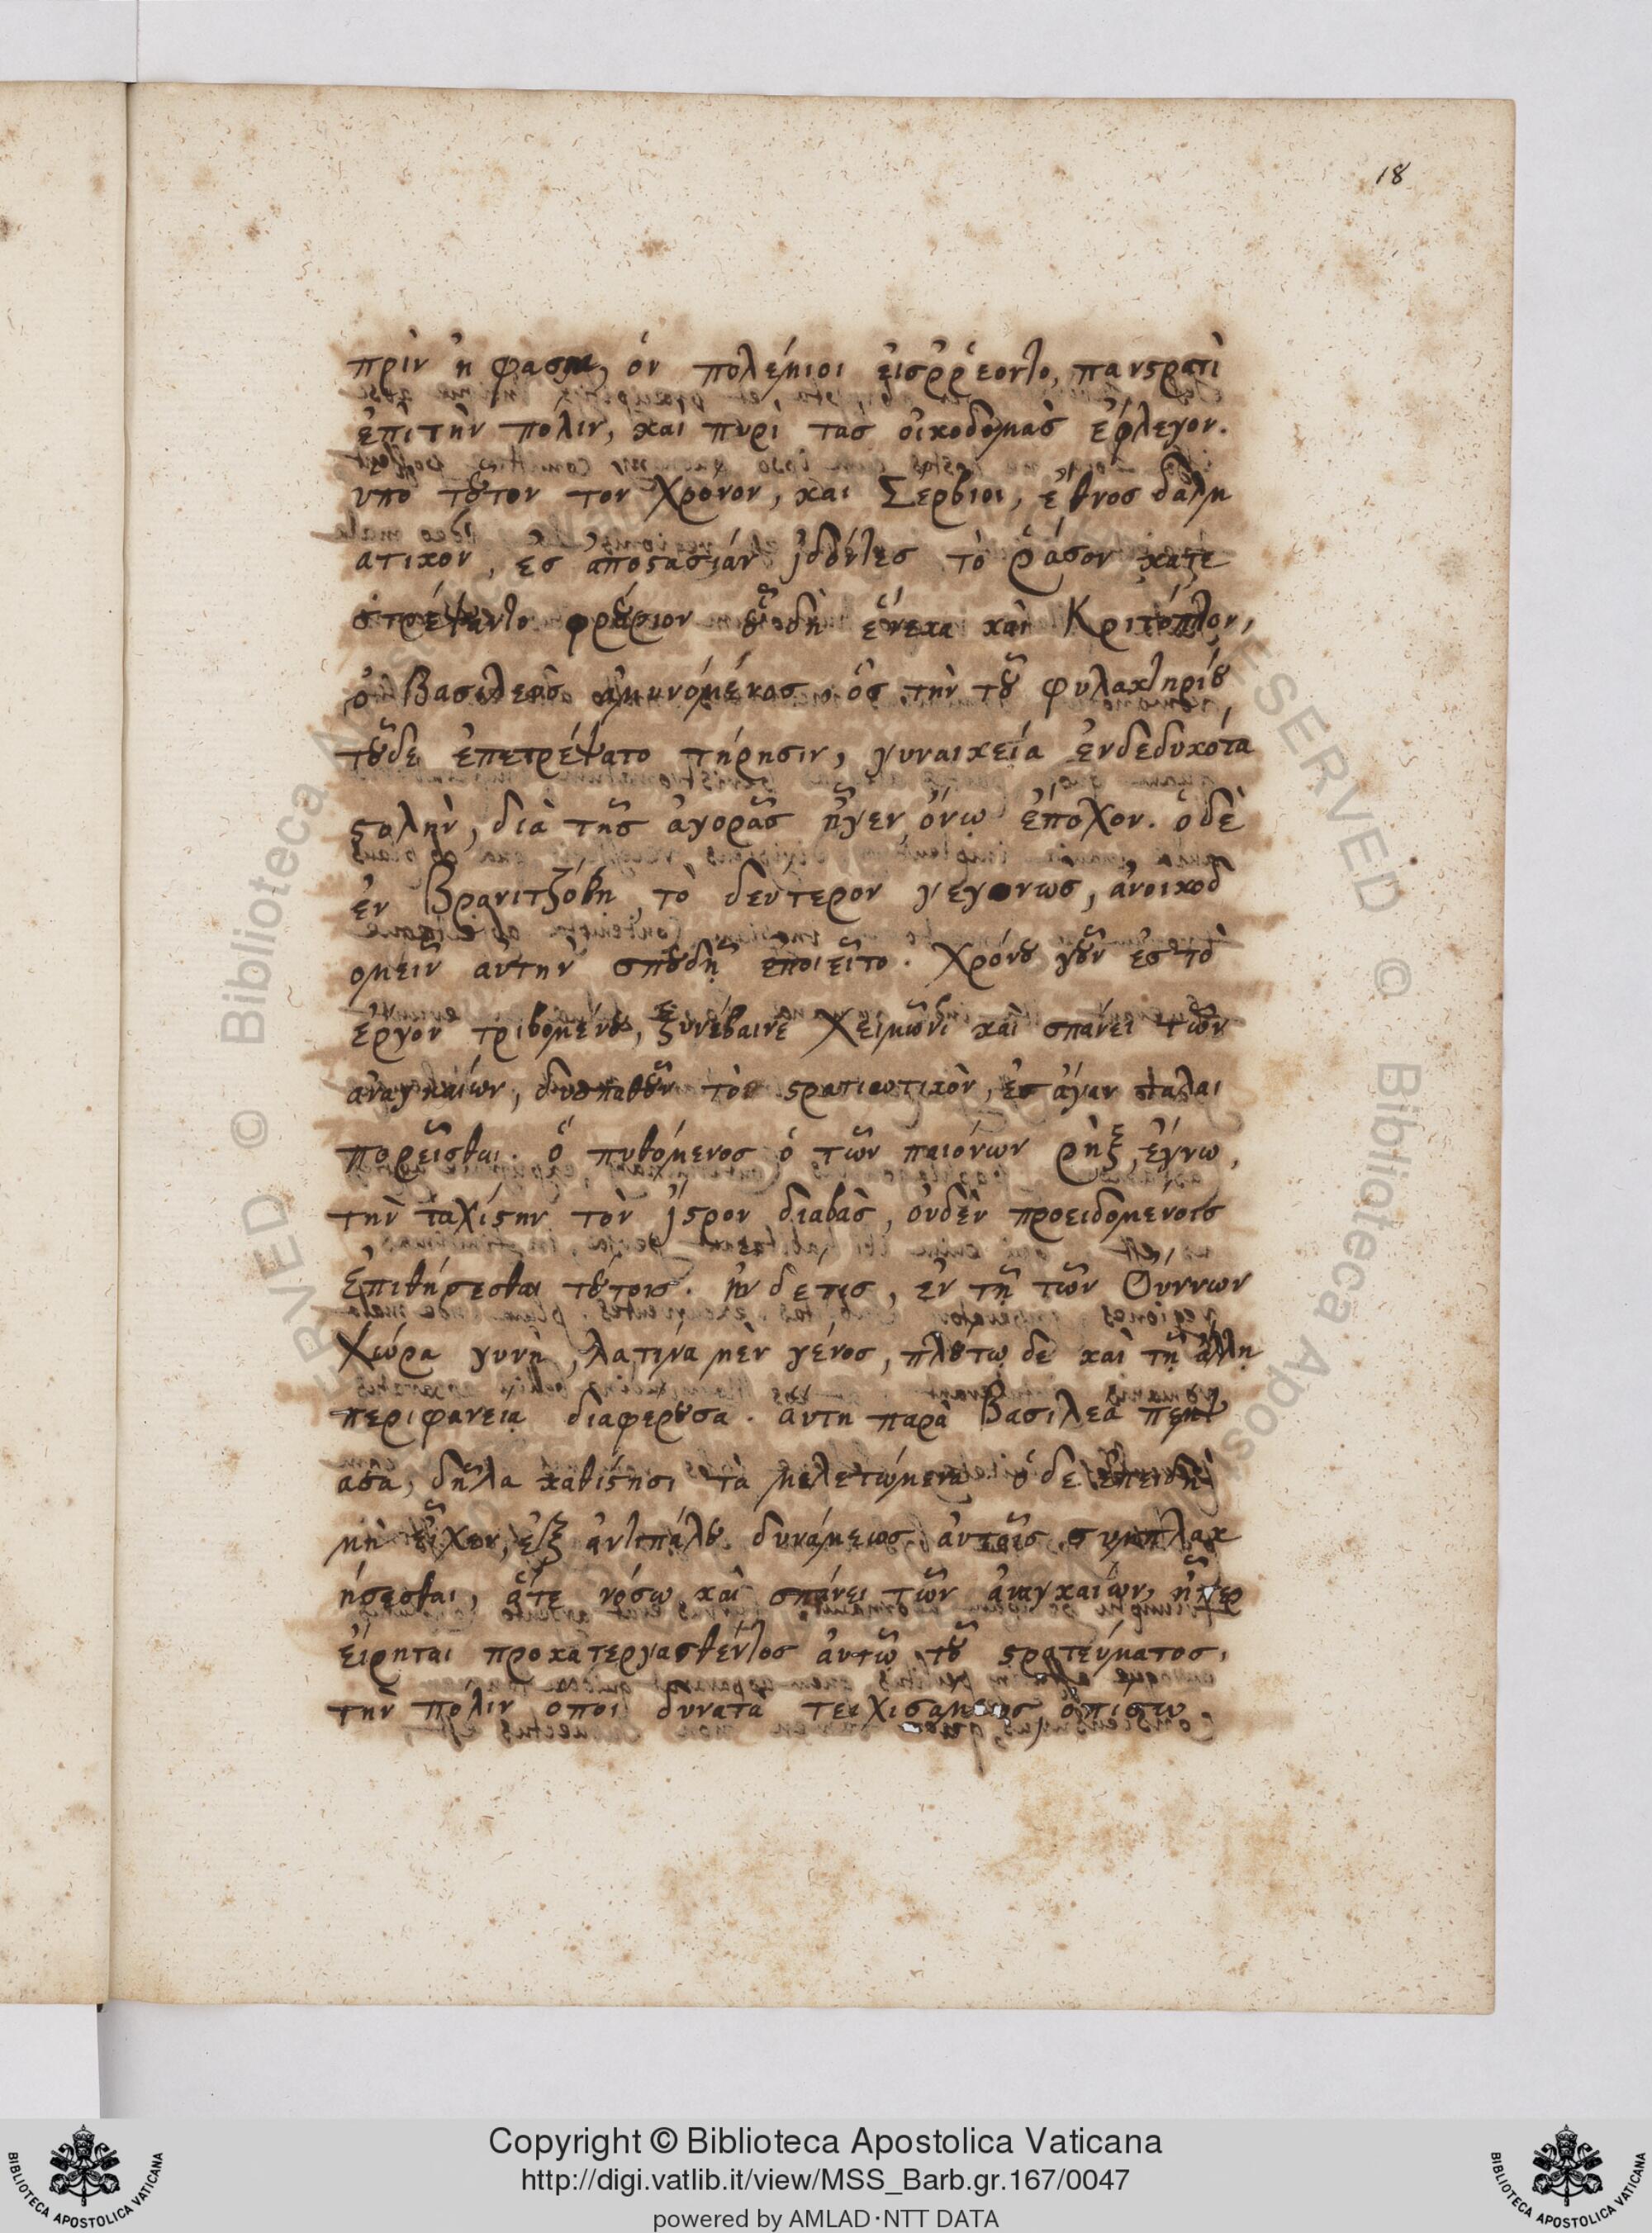 18
πρὶν ἠ φασιν, όν πολέμιοι εἰσῤῥέοντο, πανςρατὶ
ἐπιτὴν πόλιν, και πυρὶ τας οἰκοδομὰς ἐφλεγον.
υπο τȣτον τον χρόνον, και Σέρβιοι, ἔθνος δαλμ
ατικον, ες ἀποςασίαν ἰδόντες τὸ ῥάσον κατε
στρέψαντο φρȣριον ȣ̃ δὴ ἕνεκα καὶ Κριτόπλον,
ὁ Βασιλεὺς ἀμυνόμενος, ὃς τὴν τȣ̃ φυλακτηρίȣ
τȣ̃δε ἐπετρέψατο τήρησιν, γυναικεία ἐνδεδυκότα
ςολὴν, διὰ τῆς ἀγορᾶς ἦγεν ὄνῳ ἔποχον. ὁ δὲ
ἐν Βρανιτζόβη, τὸ δεύτερον γεγονως, ἀνοικοδ
ομεῖν αυτὴν σπȣδῇ ἐποιεῖτο. χρόνȣ γȣ̃ν ἐς τὸ
ἔργον τριβομένȣ, ξυνέβαινε χειμῶνι καὶ σπάνει τῶν
ἀναγκαίων, δυσπαθȣ̃ν τὸ ςρατιωτικὸν, ἐς ἀγαν ταλαι
πορεῖσθαι. ὃ πυθόμενος ὁ τῶν παιόνων ρὴξ, ἔγνω,
τὴν ταχίςην τὸν ἴςρον διαβὰς, ὀυδὲν προειδομένοις
ἐπιθήσεσθαι τȣτοις. ἠν δε τις, εν τῇ τῶν Οὐννων
χώρα γυνὴ, λατίνα μὲν γένος, πλȣτῳ δε καὶ τῇ ἄλλῃ
περιφανεία διαφερȣσα. αυτη παρὰ Βασιλέα πεμψ
ασα, δῆλα καθίςησι τὰ μελετώμενα ὁ δε ἐπειδὴ
μὴ εἶχεν, ἐξ ἀντιπάλȣ δυνάμεως ἀυτοῖς συμπλακ
ήσεσθαι, ἅτε νόσῳ καὶ σπάνει τῶν ἀναγκαίων, ᾗπερ
ἐίρηται προκατεργασθέντος ἀυτῷ τȣ̃ ςρατεύματος,
τὴν πολιν οποι δυνατὰ τειχισαμενος, ὀπίσω
Copyright © Biblioteca Apostolica Vaticana
http://digi.vatlib.it/view/MSS_Barb.gr.167/0047
powered by AMLAD·NTT DATA